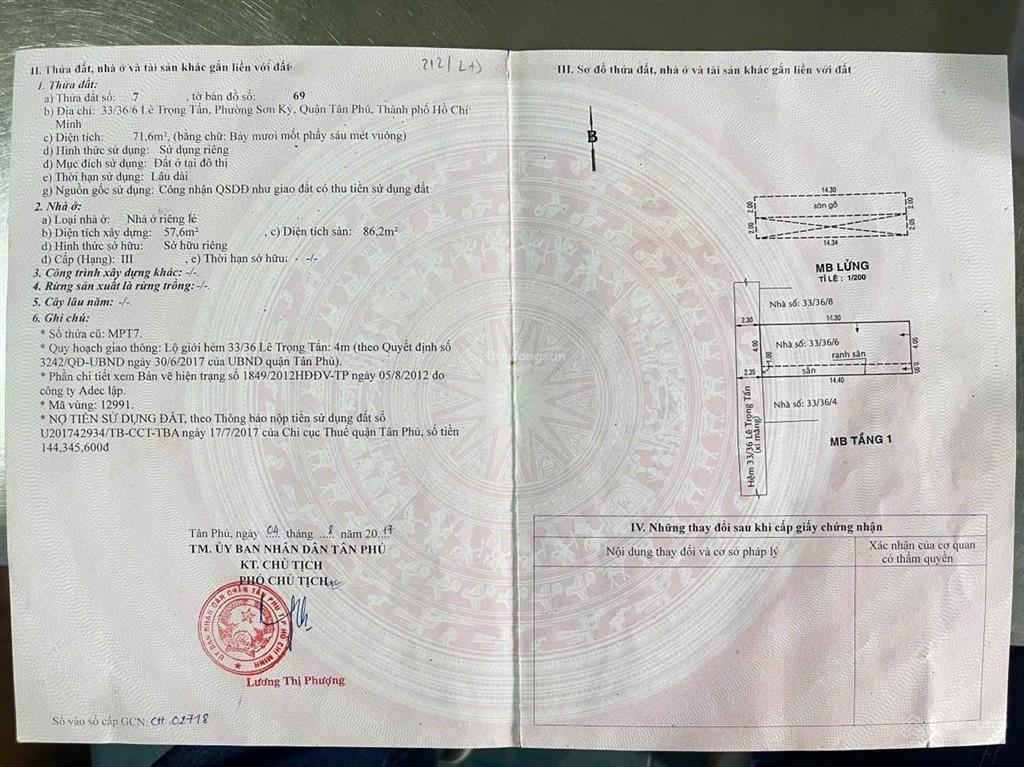 212/LAD
II. Thửa đất, nhà ở và tài sản khác gắn liền với đất
1. Thửa đất:
a) Thửa đất số: 7 , tờ bản đồ số: 69
b) Địa chỉ: 33/36/6 Lê Trọng Tấn, Phường Sơn Kỳ, Quận Tân Phú, Thành phố Hồ Chí
Minh
c) Diện tích: 71,6m², (bằng chữ: Bảy mươi mốt phẩy sáu mét vuông)
d) Hình thức sử dụng: Sử dụng riêng
đ) Mục đích sử dụng: Đất ở tại đô thị
e) Thời hạn sử dụng: Lâu dài
g) Nguồn gốc sử dụng: Công nhận QSDĐ như giao đất có thu tiền sử dụng đất
2. Nhà ở:
a) Loại nhà ở: Nhà ở riêng lẻ
b) Diện tích xây dựng: 57,6m² , c) Diện tích sàn: 86,2m²
d) Hình thức sở hữu: Sở hữu riêng
đ) Cấp (Hạng): III , e) Thời hạn sở hữu: -/-
3. Công trình xây dựng khác: -/-.
4. Rừng sản xuất là rừng trồng: -/-.
5. Cây lâu năm: -/-.
6. Ghi chú:
* Số thửa cũ: MPT7.
* Quy hoạch giao thông: Lộ giới hẻm 33/36 Lê Trọng Tấn: 4m (theo Quyết định số
3242/QĐ-UBND ngày 30/6/2017 của UBND quận Tân Phú).
* Phần chi tiết xem Bản vẽ hiện trạng số 1849/2012HĐĐV-TP ngày 05/8/2012 do
công ty Adec lập.
* Mã vùng: 12991.
* NỢ TIỀN SỬ DỤNG ĐẤT, theo Thông báo nộp tiền sử dụng đất số
U201742934/TB-CCT-TBA ngày 17/7/2017 của Chi cục Thuế quận Tân Phú, số tiền
144,345,600đ
Tân Phú, ngày 04 tháng 8 năm 2017
TM. ỦY BAN NHÂN DÂN TÂN PHÚ
KT. CHỦ TỊCH
PHÓ CHỦ TỊCH
ỦY BAN NHÂN DÂN QUẬN TÂN PHÚ TP HỒ CHÍ MINH
Lương Thị Phượng
Số vào sổ cấp GCN: CH 02718
III. Sơ đồ thửa đất, nhà ở và tài sản khác gắn liền với đất
B
14.30
2.00
sàn gỗ
2.00
2.00
2.05
14.34
MB LỬNG
TỈ LỆ : 1/200
Nhà số: 33/36/8
2.30
14.30
4.00
Nhà số: 33/36/6
4.05
ranh sân
1.00
2.35
sân
0.95
14.40
Nhà số: 33/36/4
Hẻm 33/36 Lê Trọng Tấn
(xi măng)
MB TẦNG 1
IV. Những thay đổi sau khi cấp giấy chứng nhận
Nội dung thay đổi và cơ sở pháp lý
Xác nhận của cơ quan
có thẩm quyền